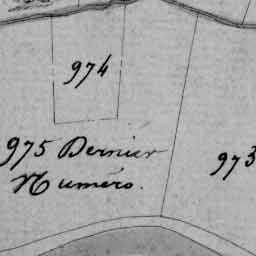 974
975 Dernier
973
Numéro.